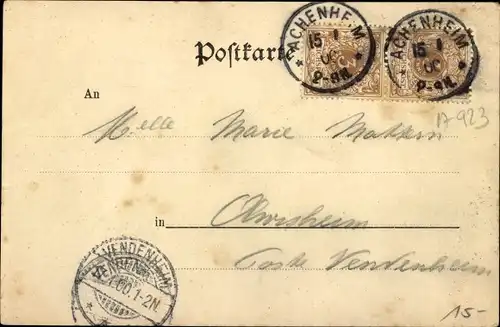 ACHENHEIM 15 1 00 2-3N. ACHENHEIM 15 1 00 2-3N.
Postkarte
A 923
An
Melle Marie
in Olwisheim
Poste Vendenheim
VENDENHEIM
1.00.1-2N.
15-